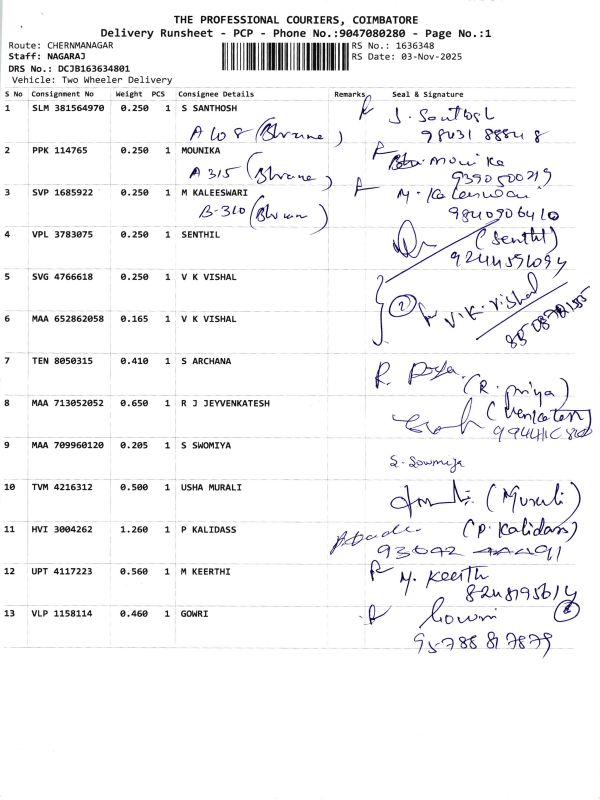 THE PROFESSIONAL COURIERS, COIMBATORE
Delivery Runsheet - PCP - Phone No.:9047080280 - Page No.:1
Route: CHERNMANAGAR
Staff: NAGARAJ
DRS No.: DCJB163634801
Vehicle: Two Wheeler Delivery
RS No.: 1636348
RS Date: 03-Nov-2025
S No Consignment No Weight PCS Consignee Details Remarks Seal & Signature
1 SLM 381564970 0.250 1 S SANTHOSH
J. Santhosh
A 108
2 PPK 114765 0.250 1 MOUNIKA
Mounika
A 315
9390500219
3 SVP 1685922 0.250 1 M KALEESWARI
M. Kaleeswari
B-310
9840906410
4 VPL 3783075 0.250 1 SENTHIL
(Senthil)
5 SVG 4766618 0.250 1 V K VISHAL
(2) V.K. Vishal
6 MAA 652862058 0.165 1 V K VISHAL
7 TEN 8050315 0.410 1 S ARCHANA
R. Priya
(R. Priya)
8 MAA 713052052 0.650 1 R J JEYVENKATESH
9 MAA 709960120 0.205 1 S SWOMIYA
S. Sowmiya
10 TVM 4216312 0.500 1 USHA MURALI
(Murali)
11 HVI 3004262 1.260 1 P KALIDASS
(P. Kalidass)
12 UPT 4117223 0.560 1 M KEERTHI
M. Keerth
8248195614
13 VLP 1158114 0.460 1 GOWRI
Gowri
9578817879